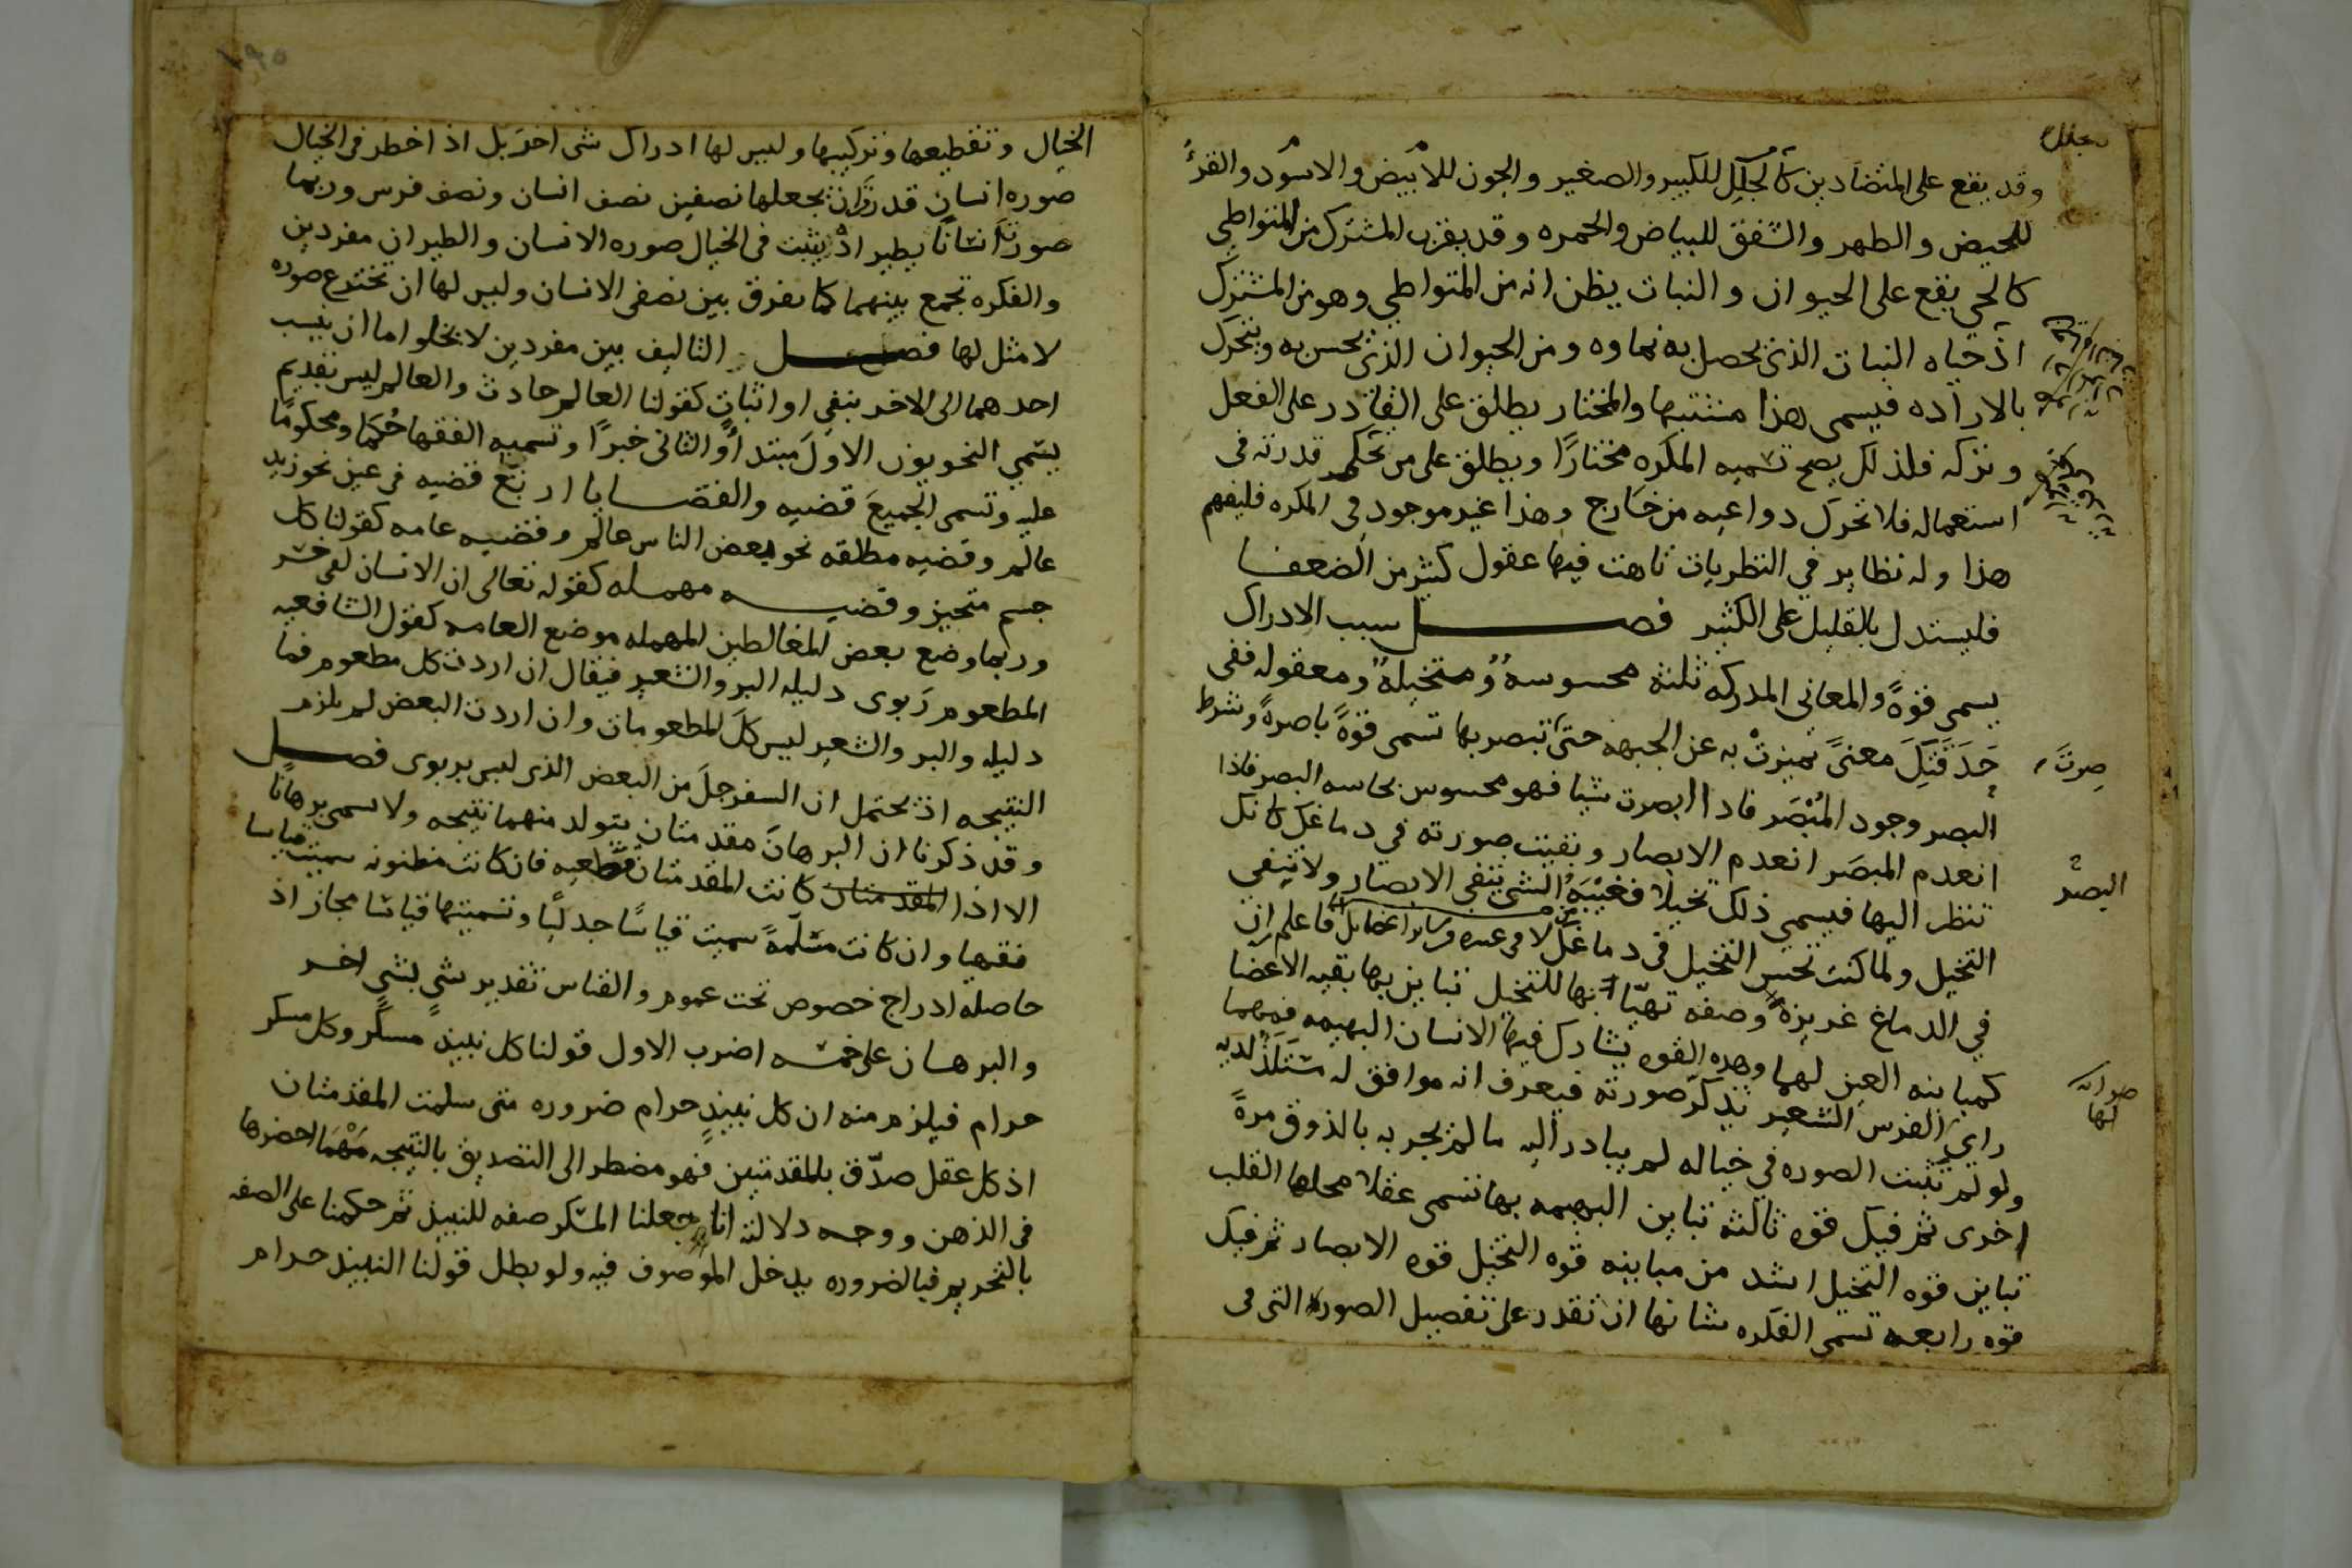 وقد يقع على المتضادين كالجلل للكبير والصغير والجون للأبيض والاسود والقرء
للحيض والطهر والشفق للبياض والحمره وقد يقرب المشترك من المتواطي
كالحي يقع على الحيوان والنبات يظن انه من المتواطي وهو من المشترك
اذ حياه النبات الذي يحصل به نماوه ومن الحيوان الذي يحس به ويتحرك
بالاراده فيسمى هذا مشتبها والمختار يطلق على القادر على الفعل
وتركه فلذلك يصح تسميه المكره مختارًا ويطلق على من تحكم قدرته في
استعماله فلا تحرك دواعيه من خارج وهذا غير موجود في المكره فليفهم
هذا وله نظاير في النظريات تاهت فيها عقول كثير من الضعفا
فليستدل بالقليل على الكثير فصل سبب الادراك
يسمى قوةً والمعاني المدركه ثلثه محسوسة ومتخيلة ومعقوله ففي
حَدَقَتِكَ معنىً تميزتْ به عن الجبهه حتى تبصر بها تسمى قوةً باصرةً وشرط
البصر وجود المُبْصَر فاذا ابصرت شيا فهو محسوس بحاسه البصر فاذا
انعدم المبصَر انعدم الابصار وبقيت صورته في دماغك كانك
تنظر اليها فيسمى ذلك تخيلا فغيْبَهُ الشي تنفي الابصار ولا تنفي
التخيل ولما كنت تحس التخيل في دماغك لا في غيره فاعلم ان
في الدماغ غريزةً وصفه تهيّا بها للتخيل تباين بها بقيه الاعضا
كمباينه العين لها وهذه القوه يشارك فيها الانسان البهيمه فمهما
راي الفرس الشعير تذكر صورته فيعرف انه موافق له مستلذ لديه
ولو لم تثبت الصوره في خياله لم يبادر اليه ما لم يجربه بالذوق مرةً
اخرى ثم فيك قوه ثالثه تباين البهيمه بها تسمى عقلا محلها القلب
تباين قوه التخيل اشد من مباينه قوه التخيل قوه الابصار ثم فيك
قوه رابعه تسمى الفكره شانها ان تقدر على تفصيل الصوره التي في
صرتَ
البصر
لها
الخيال وتقطيعها وتركيبها وليس لها ادراك شي اخر بل اذ اخطر في الخيال
صوره انسان قدر ان يجعلها نصفين نصف انسان ونصف فرس وربما
صور انسانًا يطير اذ يثبت في الخيال صوره الانسان والطيران مفردين
والفكره تجمع بينهما كما تفرق بين نصفي الانسان وليس لها ان تخترع صوره
لا مثل لها فصل التاليف بين مفردين لا يخلو اما ان ينسب
احدهما الى الاخر بنفي او اثبات كقولنا العالم حادث والعالم ليس بقديم
يسمي النحويون الاول مبتدأ والثاني خبرًا وتسميه الفقها حُكما ومحكومًا
عليه وتسمى الجميعَ قضيه والقضايا اربَع قضيه في عين نحو زيد
عالم وقضيه مطلقه نحو بعض الناس عالم وقضيه عامه كقولنا كل
جسم متحيز وقضيه مهمله كقوله تعالى ان الانسان لفي خسر
وربما وضع بعض المغالطين المهمله موضع العامه كقول الشافعيه
المطعوم رَبوى دليله البر والشعير فيقال ان اردت كل مطعوم فما
دليله والبر والشعير ليس كلَ المطعومات وان اردت البعض لم يلزم
النتيجه اذ يحتمل ان السفرجلَ من البعض الذي ليس بربوى فصل
وقد ذكرنا ان البرهانَ مقدمتان يتولد منهما نتيجه ولا يسمى برهانًا
الا اذا المقدمتان كانت المقدمتان قطعيه فان كانت مظنونه سميت قياسا
فقهيا وان كانت مسَلَّمةً سميت قياسًا جدليًا وتسميتها قياسًا مجاز اذ
حاصله ادراج خصوص تحت عموم والقياس تقدير شي بشي اخر
والبرهان على خمسه اضرب الاول قولنا كل نبيذ مسكر وكل مسكر
حرام فيلزم منه ان كل نبيذٍ حرام ضروره متى سلمت المقدمتان
اذ كل عقل صدّق بالمقدمتين فهو مضطر الى التصديق بالنتيجه مَهْمَا احضرها
في الذهن ووجه دلالته انا جعلنا المسكر صفه للنبيذ ثم حكمنا على الصفه
بالتحريم فبالضروره يدخل الموصوف فيه ولو بطل قولنا النبيذ حرام